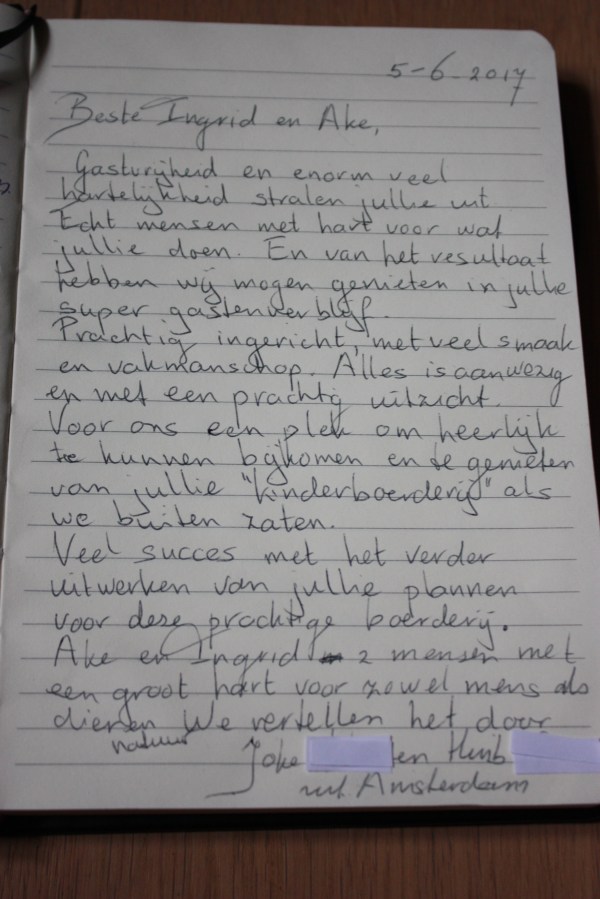 5-6-2017
Beste Ingrid en Ake,
Gastvrijheid en enorm veel
hartelijkheid stralen jullie uit
Echt mensen met hart voor wat
jullie doen. En van het resultaat
hebben wij mogen genieten in jullie
super gastenverblijf.
Prachtig ingericht, met veel smaak
en vakmanschap. Alles is aanwezig
en met een prachtig uitzicht.
Voor ons een plek om heerlijk
te kunnen bijkomen en te genieten
van jullie "kinderboerderij" als
we buiten zaten.
Veel succes met het verder
uitwerken van jullie plannen
voor deze prachtige boerderij.
Ake en Ingrid 2 mensen met
een groot hart voor zowel mens als
dieren We vertellen het door
natuur
Joke en Huib
uit Amsterdam